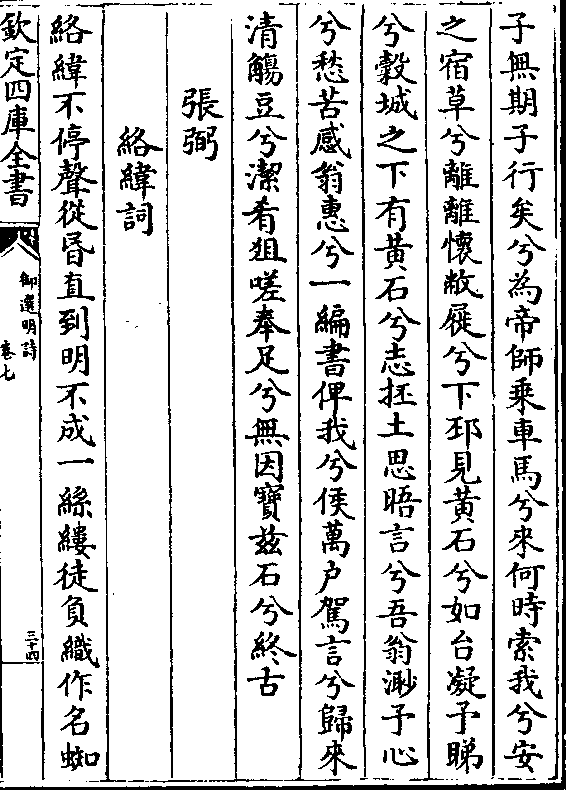 子無期子行矣兮為帝師乘車馬兮來何時索我兮安
之宿草兮離離懷敝屣兮下邳見黃石兮如台凝予睇
兮穀城之下有黃石兮志抔土思晤言兮吾翁渺予心
兮愁苦感翁惠兮一編書俾我兮侯萬户駕言兮歸來
清觴豆兮潔肴狙嗟奉足兮無因寶兹石兮終古
張弼
絡緯詞
絡緯不停聲從昏直到明不成一絲縷徒負織作名蜘
欽定四庫全書
御選明詩
卷七
三十四